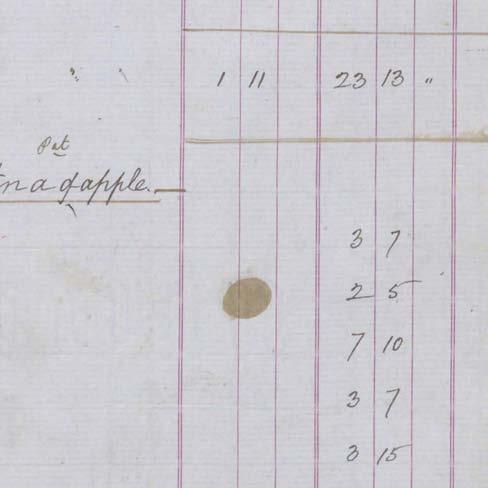 " " 1 11 23 13 "
Pat
na dapple.
3 7
2 5
7 10
3 7
3 15